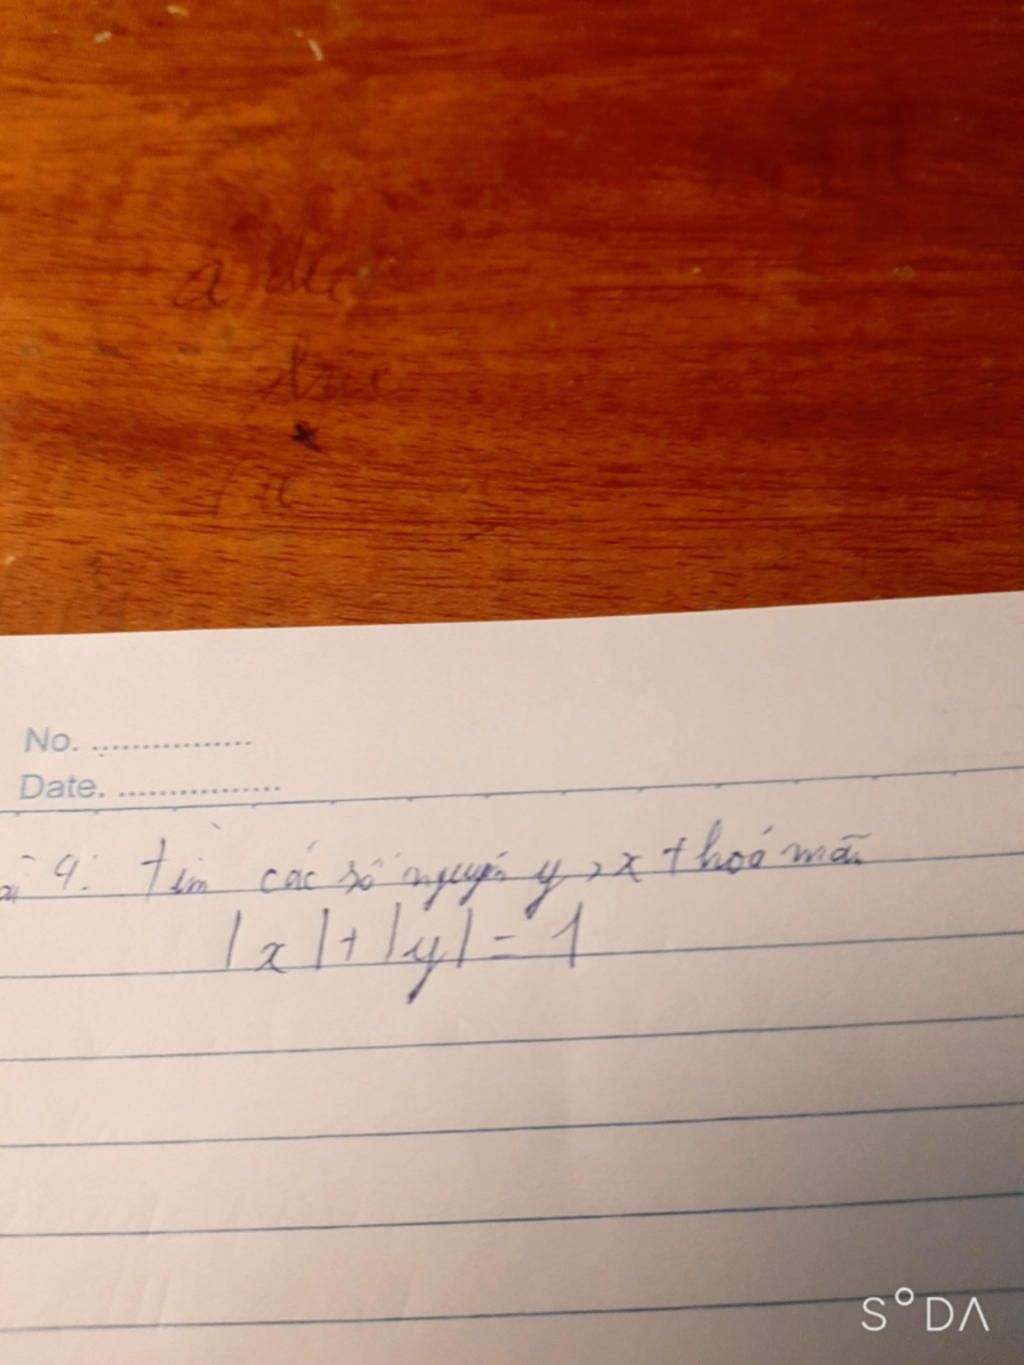 No. ................
Date. ................
4: tìm các số nguyên y, x thoả mãn
|x| + |y| = 1
S°DA